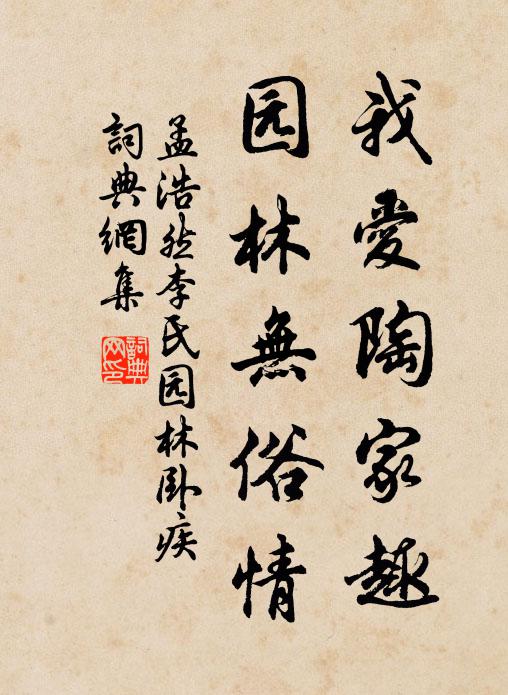 我愛陶家趣
园林無俗情
孟浩然李氏园林卧疾
詞典網集
詞典
网印